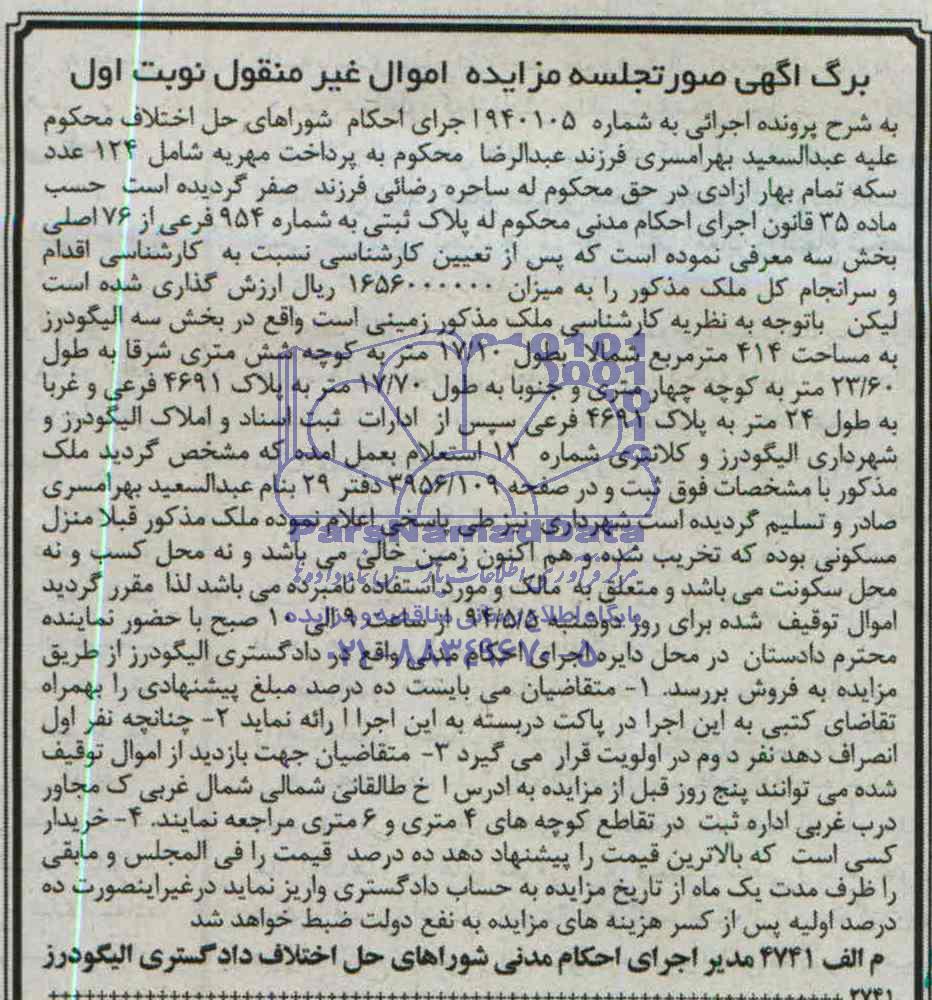 برگ اگهی صورتجلسه مزایده اموال غیر منقول نوبت اول
به شرح پرونده اجرائی به شماره ۹۴۰۱۰۵ اجرای احکام شوراهای حل اختلاف محکوم
علیه عبدالسعید بهرامسری فرزند عبدالرضا محکوم به پرداخت مهریه شامل ۱۲۴ عدد
سکه تمام بهار ازادی در حق محکوم له ساحره رضائی فرزند صفر گردیده است حسب
ماده ۳۵ قانون اجرای احکام مدنی محکوم له پلاک ثبتی به شماره ۹۵۴ فرعی از ۷۶ اصلی
بخش سه معرفی نموده است که پس از تعیین کارشناسی نسبت به کارشناسی اقدام
و سرانجام کل ملک مذکور را به میزان ۱۶۵۶۰۰۰۰۰۰ ریال ارزش گذاری شده است
لیکن باتوجه به نظریه کارشناسی ملک مذکور زمینی است واقع در بخش سه الیگودرز
به مساحت ۴۱۴ مترمربع شمالا بطول ۱۷/۲۰ متر به کوچه شش متری شرقا به طول
۲۳/۶۰ متر به کوچه چهار متری و جنوبا به طول ۱۷/۷۰ متر به پلاک ۴۶۹۱ فرعی و غربا
به طول ۲۴ متر به پلاک ۴۶۹۱ فرعی سپس از ادارات ثبت اسناد و املاک الیگودرز و
شهرداری الیگودرز و کلانتری شماره ۱۲ استعلام بعمل امده که مشخص گردید ملک
مذکور با مشخصات فوق ثبت و در صفحه ۳۹۵۶/۱۰۹ دفتر ۲۹ بنام عبدالسعید بهرامسری
صادر و تسلیم گردیده است شهرداری نیز طی پاسخی اعلام نموده ملک مذکور قبلا منزل
ParsNamadData
مسکونی بوده که تخریب شده و هم اکنون زمین خالی می باشد و نه محل کسب و نه
محل سکونت می باشد و متعلق به مالک و مورد استفاده نامبرده می باشد لذا مقرر گردید
اموال توقیف شده برای روز دوشنبه ۹۴/۵/۵ از ساعت ۹ الی ۱۰ صبح با حضور نماینده
محترم دادستان در محل دایره اجرای احکام مدنی واقع در دادگستری الیگودرز از طریق
۰۲۱-۸۸۳۴۹۶۷۰-۵
مزایده به فروش بررسد. ۱- متقاضیان می بایست ده درصد مبلغ پیشنهادی را بهمراه
تقاضای کتبی به این اجرا در پاکت دربسته به این اجرا ا رائه نماید ۲- چنانچه نفر اول
انصراف دهد نفر د وم در اولویت قرار می گیرد ۳- متقاضیان جهت بازدید از اموال توقیف
شده می توانند پنج روز قبل از مزایده به ادرس ا خ طالقانی شمالی شمال غربی ک مجاور
درب غربی اداره ثبت در تقاطع کوچه های ۴ متری و ۶ متری مراجعه نمایند. ۴- خریدار
کسی است که بالاترین قیمت را پیشنهاد دهد ده درصد قیمت را فی المجلس و مابقی
را ظرف مدت یک ماه از تاریخ مزایده به حساب دادگستری واریز نماید درغیراینصورت ده
درصد اولیه پس از کسر هزینه های مزایده به نفع دولت ضبط خواهد شد
م الف ۴۷۴۱ مدیر اجرای احکام مدنی شوراهای حل اختلاف دادگستری الیگودرز